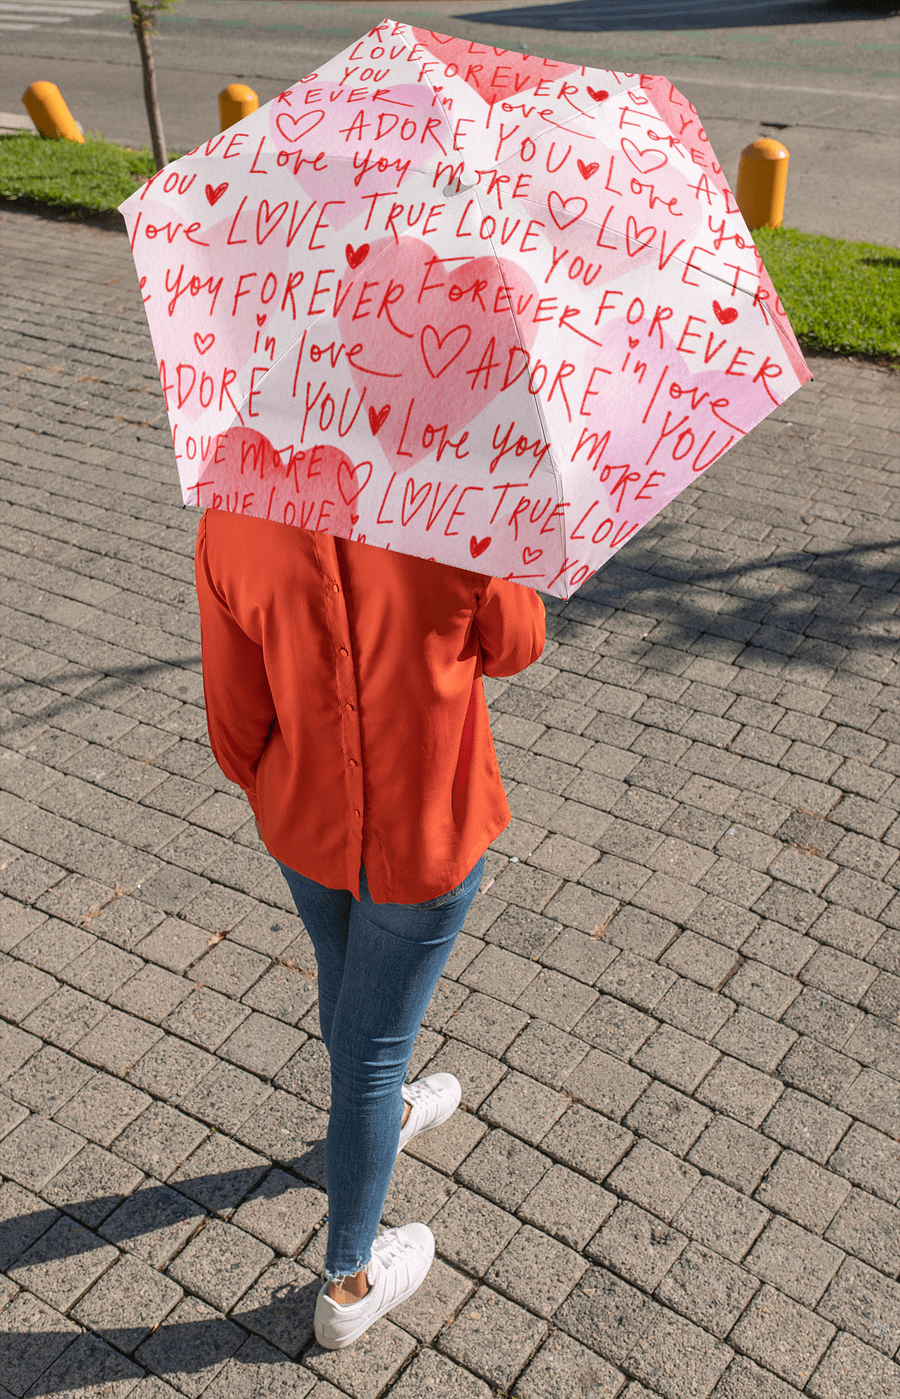 RE LOVE
LOVE LOVE
YOU FOREVER
REVER in love Forever
ADORE YOU
LOVE Love you MORE Love AD
YOU you
love LOVE TRUE LOVE LOVE TRU
YOU
e you FOREVER FOREVER FOREVER
in love ADORE in love
ADORE YOU YOU
Love you MORE
LOVE MORE
TRUE LOVE LOVE TRUE LOV
in YOU